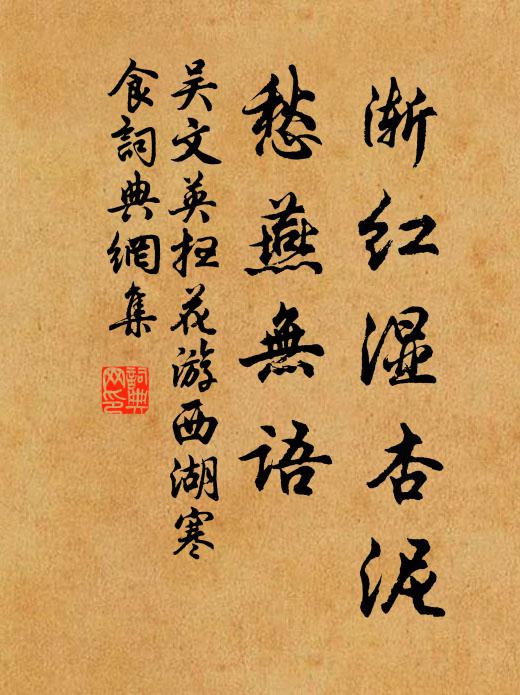 渐红湿杏泥
愁燕無语
吴文英扫花游西湖寒
食詞典網集
詞典
网印